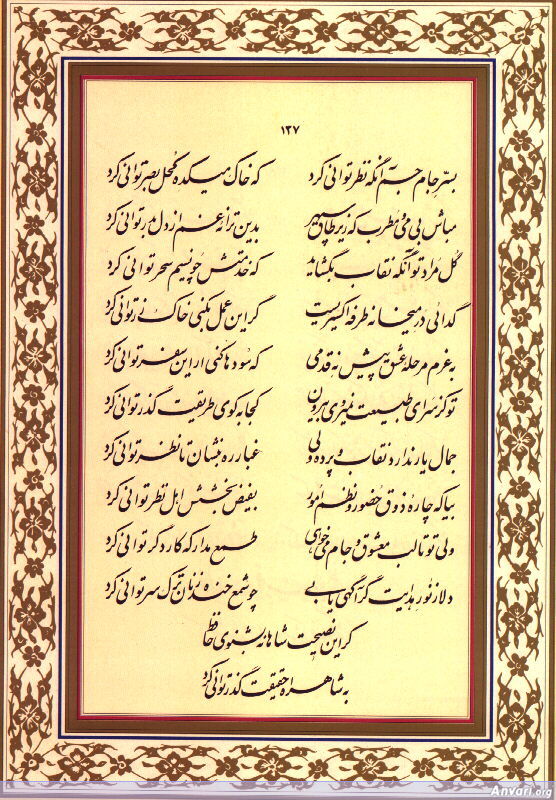 ۱۳۷
بسرّ جام جم آنگه نظر توانی کرد که خاک میکده کحل بصر توانی کرد
مباش بی می و مطرب که زیر طاق سپهر بدین ترانه غم از دل بدر توانی کرد
گل مراد تو آنگه نقاب بگشاید که خدمتش چو نسیم سحر توانی کرد
گدائی در میخانه طرفه اکسیریست گر این عمل بکنی خاک زر توانی کرد
به عزم مرحله عشق پیش نه قدمی که سودها کنی ار این سفر توانی کرد
تو کز سرای طبیعت نمیروی بیرون کجا به کوی طریقت گذر توانی کرد
جمال یار ندارد نقاب و پرده ولی غبار ره بنشان تا نظر توانی کرد
بیا که چاره ذوق حضور و نظم امور بفیض بخشش اهل نظر توانی کرد
ولی تو تا لب معشوق و جام می خواهی طمع مدار که کار دگر توانی کرد
دلا ز نور هدایت گر آگهی یابی چو شمع خنده زنان ترک سر توانی کرد
گر این نصیحت شاهانه بشنوی حافظ
به شاهراه حقیقت گذر توانی کرد
Anvari.org